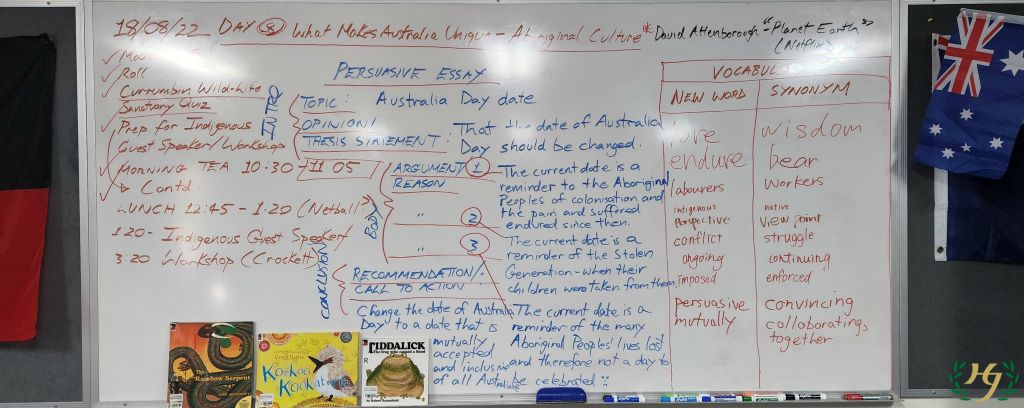 18/08/22 DAY 8 What Makes Australia Unique - Aboriginal Culture * David Attenborough - "Planet Earth" (Netflix)
Roll
Currumbin Wild-Life
Sanctuary Quiz
Prep for Indigenous
Guest Speaker/Workshop
MORNING TEA 10:30 - 11 05
Contd.
LUNCH 12:45 - 1:20 (Netball)
1.20 - Indigenous Guest Speaker/
3.20 Workshop (Crockett)
PERSUASIVE ESSAY
INTRO
TOPIC: Australia Day date
OPINION/
THESIS STATEMENT: That the date of Australia
Day should be changed.
BODY
ARGUMENT 1
REASON
The current date is a
reminder to the Aboriginal
Peoples of colonisation and
the pain and suffered
endured since then.
" 2
The current date is a
reminder of the Stolen
Generation - when their
children were taken from them.
" 3
The current date is a
reminder of the many
Aboriginal Peoples' lives lost
and therefore not a day to
be celebrated
CONCLUSION
RECOMMENDATION/
CALL TO ACTION:
Change the date of Australia
Day to a date that is
mutually
accepted
and inclusive
of all Australians
VOCABULARY
NEW WORD SYNONYM
lore wisdom
endure bear
labourers workers
indigenous native
Perspective View point
conflict struggle
ongoing continuing
imposed enforced
persuasive convincing
mutually collaborating,
together
The Rainbow Serpent
Kookoo Kookaburra
TIDDALICK
The frog who caused a flood
HJ